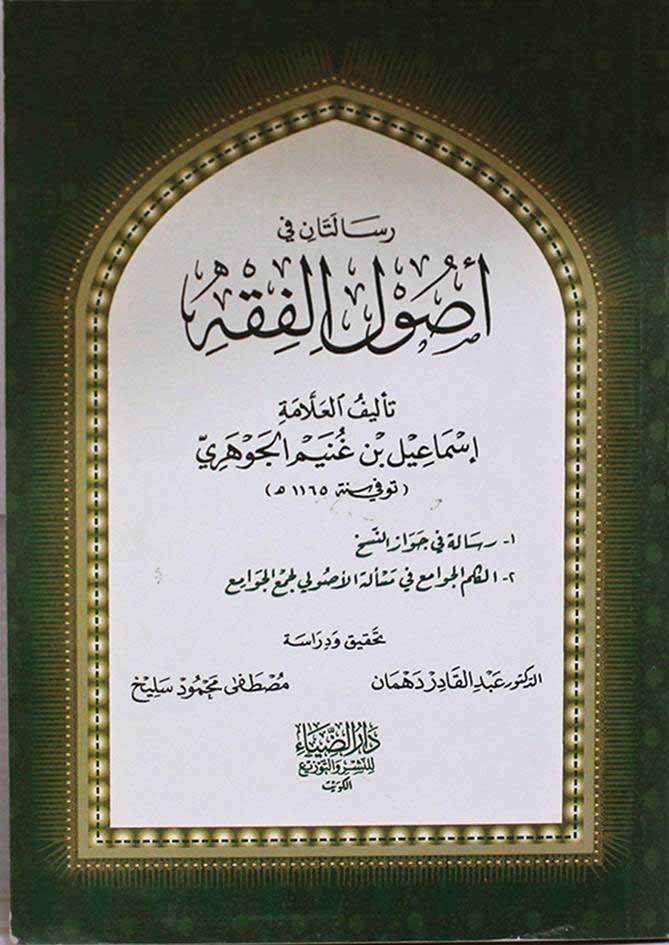 رسالتان في
أصول الفقه
تأليف العلامة
إسماعيل بن غنيم الجوهري
(توفي سنة ١١٦٥ هـ)
١- رسالة في جواز النسخ
٢- الكلم الجوامع في مسألة الأصولي لجمع الجوامع
تحقيق ودراسة
الدكتور عبد القادر دهمان مصطفى محمود سليخ
دار الضياء
للنشر والتوزيع
الكويت